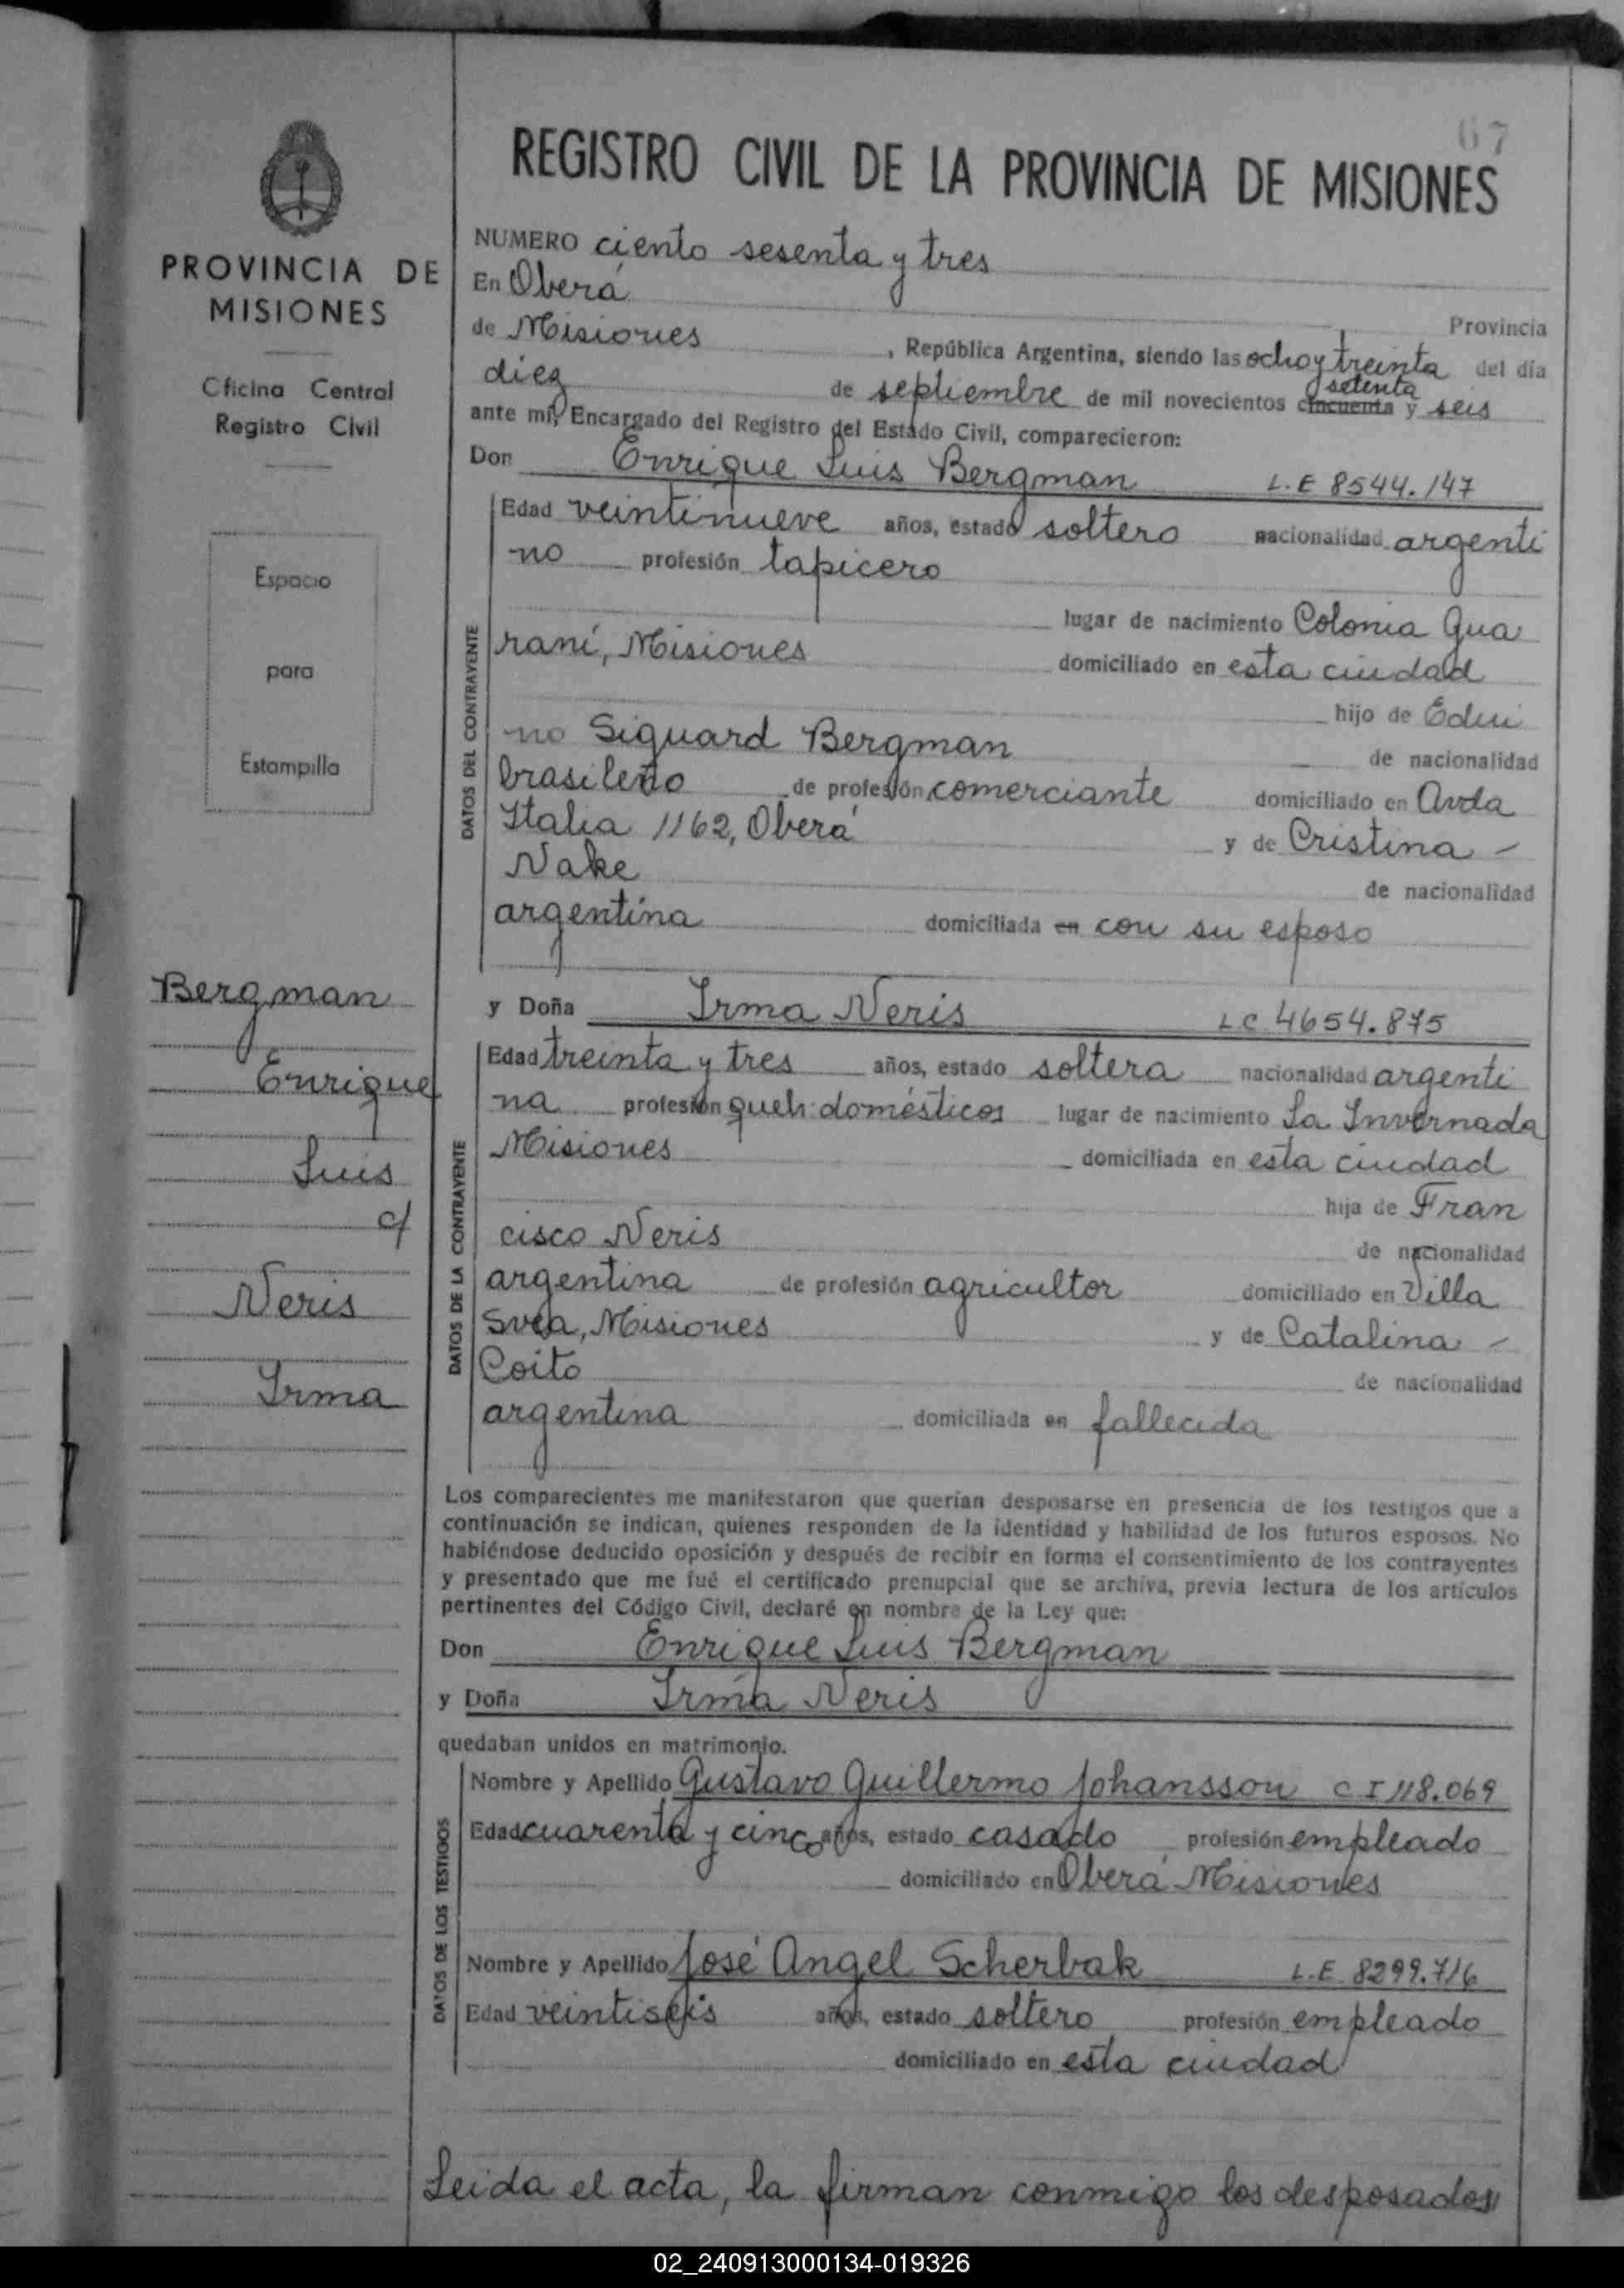 67
REGISTRO CIVIL DE LA PROVINCIA DE MISIONES
PROVINCIA DE
MISIONES
Oficina Central
Registro Civil
Espacio
para
Estampilla
Bergman
Enrique
Luis
c/
Neris
Irma
NUMERO ciento sesenta y tres
En Oberá Provincia
de Misiones , República Argentina, siendo las ocho y treinta del día
diez de septiembre de mil novecientos cincuenta setenta y seis
ante mí, Encargado del Registro del Estado Civil, comparecieron:
Don Enrique Luis Bergman L.E 8544.147
DATOS DEL CONTRAYENTE
Edad veintinueve años, estado soltero nacionalidad argenti
no profesión tapicero
lugar de nacimiento Colonia Gua
raní, Misiones domiciliado en esta ciudad
hijo de Edui
no Siguard Bergman de nacionalidad
brasileño de profesión comerciante domiciliado en Avda
Italia 1162, Oberá y de Cristina -
Nake de nacionalidad
argentina domiciliada en con su esposo
y Doña Irma Neris LC 4654.875
DATOS DE LA CONTRAYENTE
Edad treinta y tres años, estado soltera nacionalidad argenti
na profesión queh. domésticos lugar de nacimiento La Invernada
Misiones domiciliada en esta ciudad
hija de Fran
cisco Neris de nacionalidad
argentina de profesión agricultor domiciliado en Villa
Svea, Misiones y de Catalina -
Coito de nacionalidad
argentina domiciliada en fallecida
Los comparecientes me manifestaron que querían desposarse en presencia de los testigos que a
continuación se indican, quienes responden de la identidad y habilidad de los futuros esposos. No
habiéndose deducido oposición y después de recibir en forma el consentimiento de los contrayentes
y presentado que me fué el certificado prenupcial que se archiva, previa lectura de los artículos
pertinentes del Código Civil, declaré en nombre de la Ley que:
Don Enrique Luis Bergman
y Doña Irma Neris
quedaban unidos en matrimonio.
DATOS DE LOS TESTIGOS
Nombre y Apellido Gustavo Guillermo Johansson C I 118.069
Edad cuarenta y cinco años, estado casado profesión empleado
domiciliado en Oberá Misiones
Nombre y Apellido José Angel Scherbak L.E 8299.716
Edad veintiseis años, estado soltero profesión empleado
domiciliado en esta ciudad
Leida el acta, la firman conmigo los desposados
02_240913000134-019326